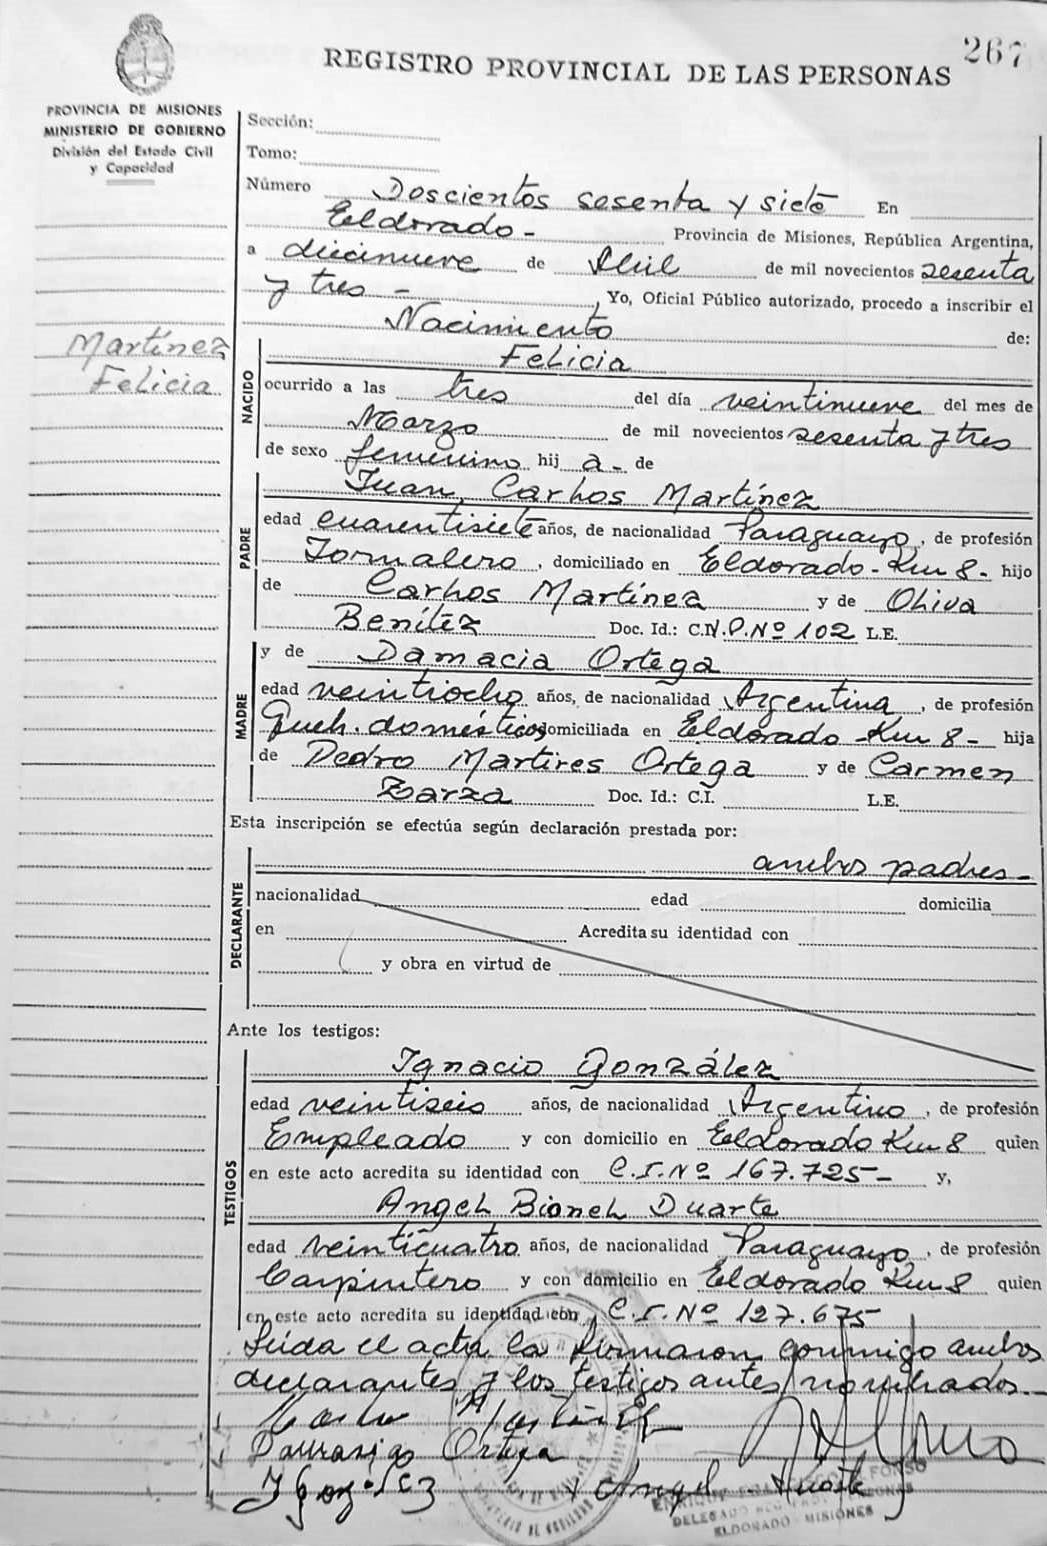 267
REGISTRO PROVINCIAL DE LAS PERSONAS
PROVINCIA DE MISIONES
MINISTERIO DE GOBIERNO
División del Estado Civil
y Capacidad
Sección:
Tomo:
Número Doscientos sesenta y siete En
Eldorado - Provincia de Misiones, República Argentina,
a diecinueve de Abril de mil novecientos sesenta
y tres - , Yo, Oficial Público autorizado, procedo a inscribir el
Nacimiento de:
Martínez
Felicia
NACIDO
Felicia
ocurrido a las tres del día veintinueve del mes de
Marzo de mil novecientos sesenta y tres
de sexo femenino hij a - de
PADRE
Juan Carlos Martínez
edad cuarentisiete años, de nacionalidad Paraguayo, de profesión
Jornalero, domiciliado en Eldorado - Km 8 - hijo
de Carlos Martínez y de Oliva
Benítez Doc. Id.: C.N.P.Nº 102 L.E.
MADRE
y de Damacia Ortega
edad veintiocho años, de nacionalidad Argentina, de profesión
Queh. domésticos domiciliada en Eldorado - Km 8 - hija
de Pedro Martires Ortega y de Carmen
Zarza Doc. Id.: C.I. L.E.
Esta inscripción se efectúa según declaración prestada por:
DECLARANTE
ambos padres -
nacionalidad edad domicilia
en Acredita su identidad con
y obra en virtud de
Ante los testigos:
TESTIGOS
Ignacio González
edad veintiseis años, de nacionalidad Argentino, de profesión
Empleado y con domicilio en Eldorado Km 8 quien
en este acto acredita su identidad con C.I.Nº 167.725 - y,
Angel Bionel Duarte
edad veinticuatro años, de nacionalidad Paraguayo, de profesión
Carpintero y con domicilio en Eldorado Km 8 quien
en este acto acredita su identidad con C.I.Nº 127.675
Leida el acta la firmaron conmigo ambos
declarantes y los testigos antes nombrados. -
Ortega
Angel Duarte
DELEGADO
ELDORADO - MISIONES